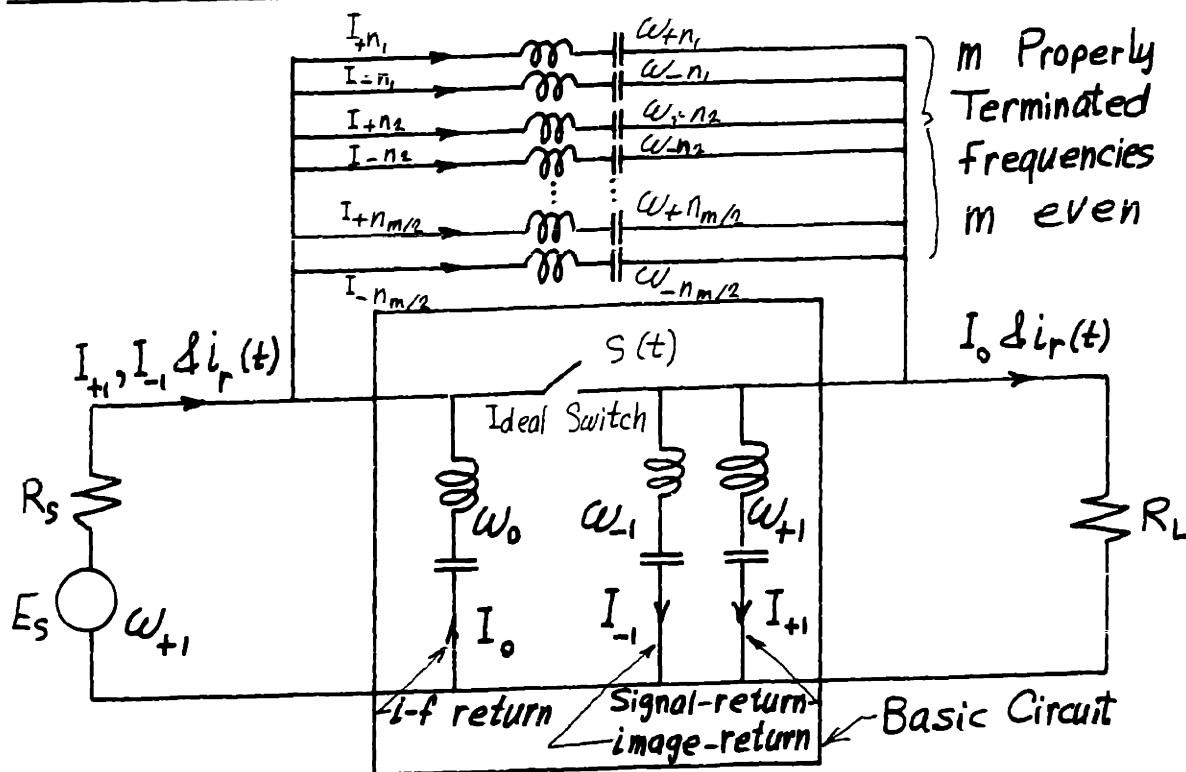 I+n₁
ω+n₁
I-n₁
ω-n₁
I+n₂
ω+n₂
I-n₂
ω-n₂
I+n_m/2
ω+n_m/2
I-n_m/2
ω-n_m/2
m Properly
Terminated
frequencies
m even
I+1, I-1 & i_r(t)
S(t)
I₀ & i_r(t)
Ideal Switch
R_S
ω₀
ω-1
ω+1
R_L
E_S
ω+1
I₀
I-1
I+1
i-f return
Signal-return
image-return
Basic Circuit